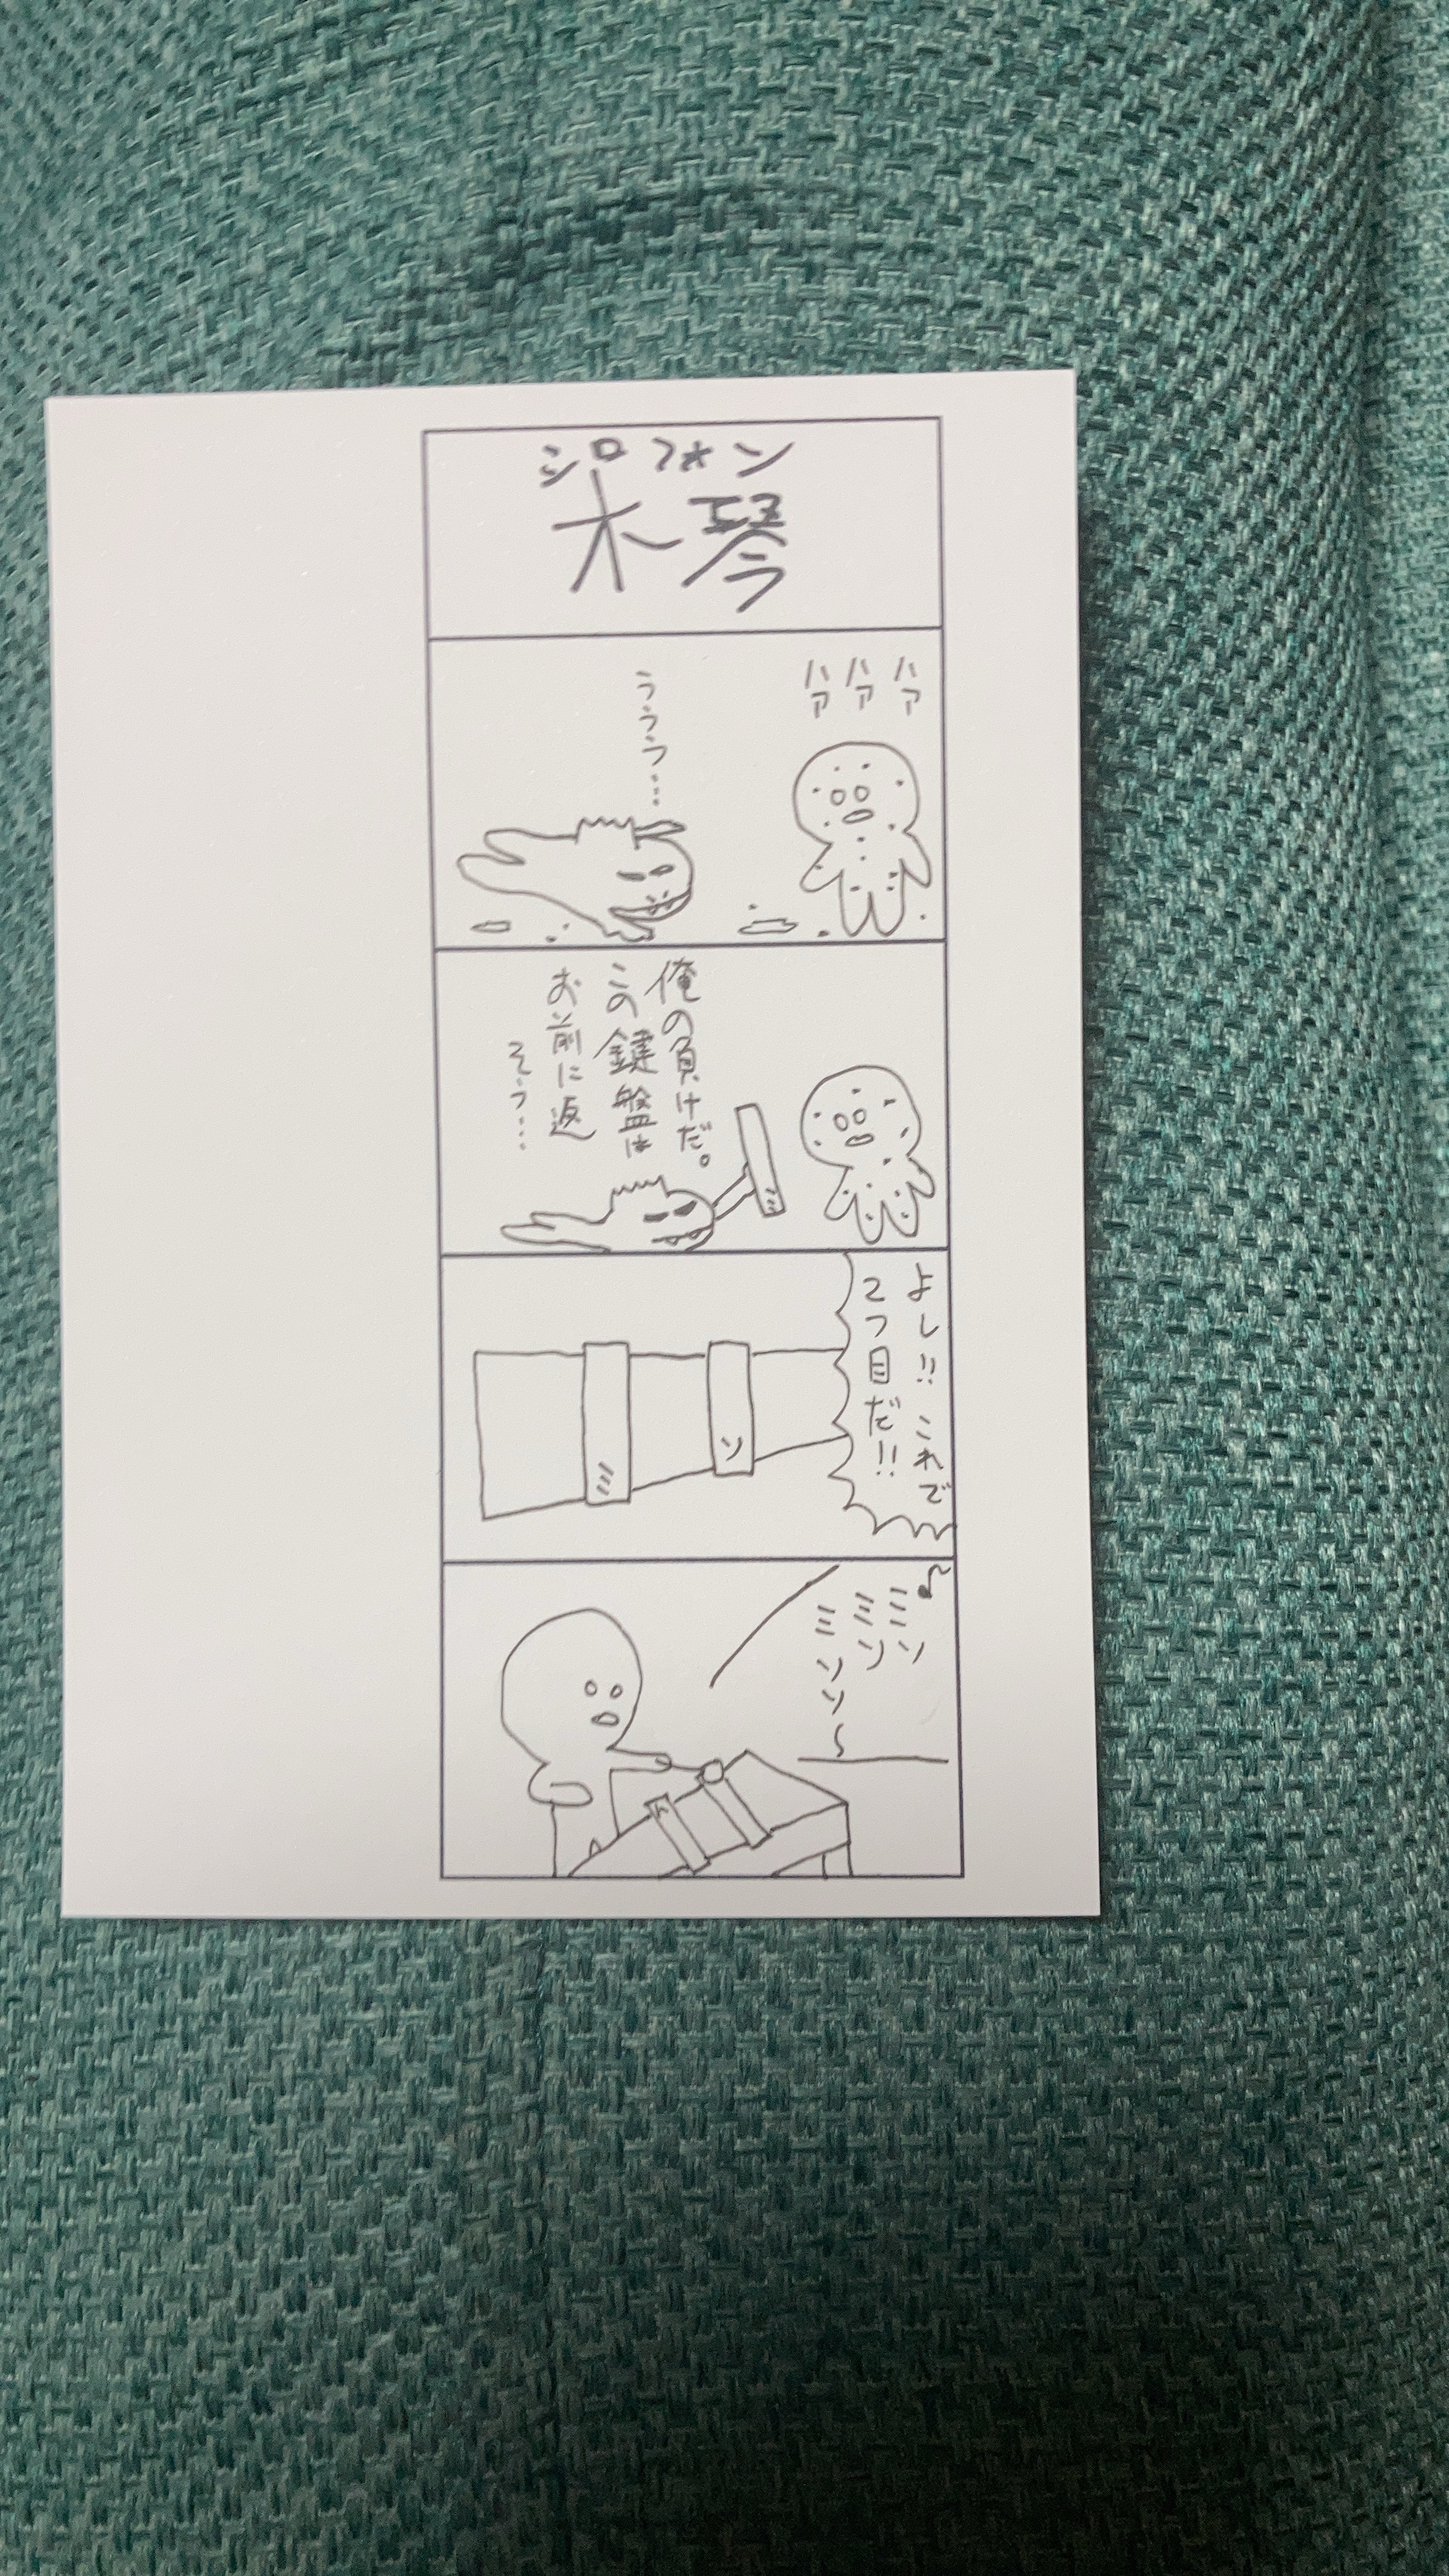 シロフォン
木琴
ハァ
ハァ
ハァ
ううう…
俺の負けだ。
この鍵盤は
お前に返
そう…
ミ
よし!!これで
2つ目だ!!
ソ
ミ
♪ミソ
ミソ
ミソソ〜